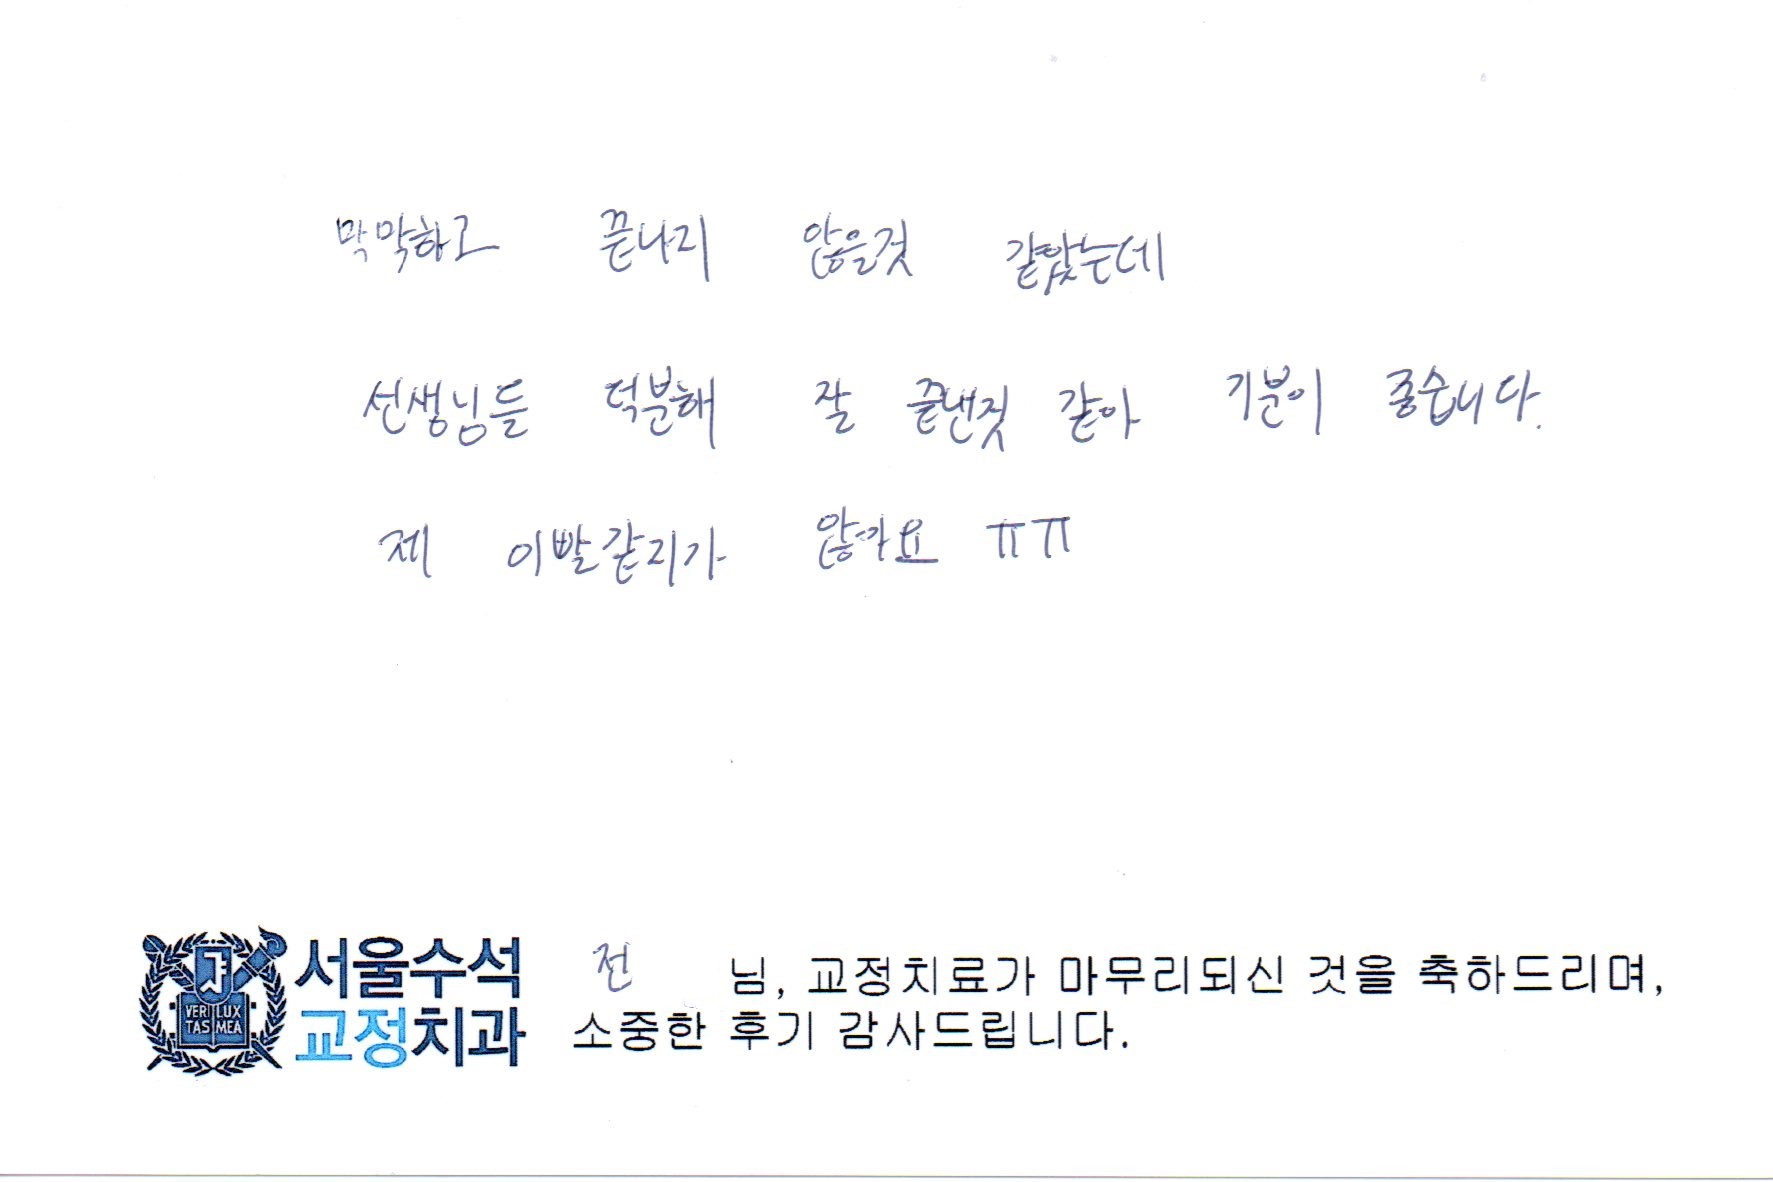 막막하고 끝나지 않을것 같았는데
선생님들 덕분해 잘 끝낸것 같아 기분이 좋습니다.
제 이빨같지가 않아요 ㅠㅠ
서울수석
교정치과
VERI LUX
TAS MEA
전 님, 교정치료가 마무리되신 것을 축하드리며,
소중한 후기 감사드립니다.